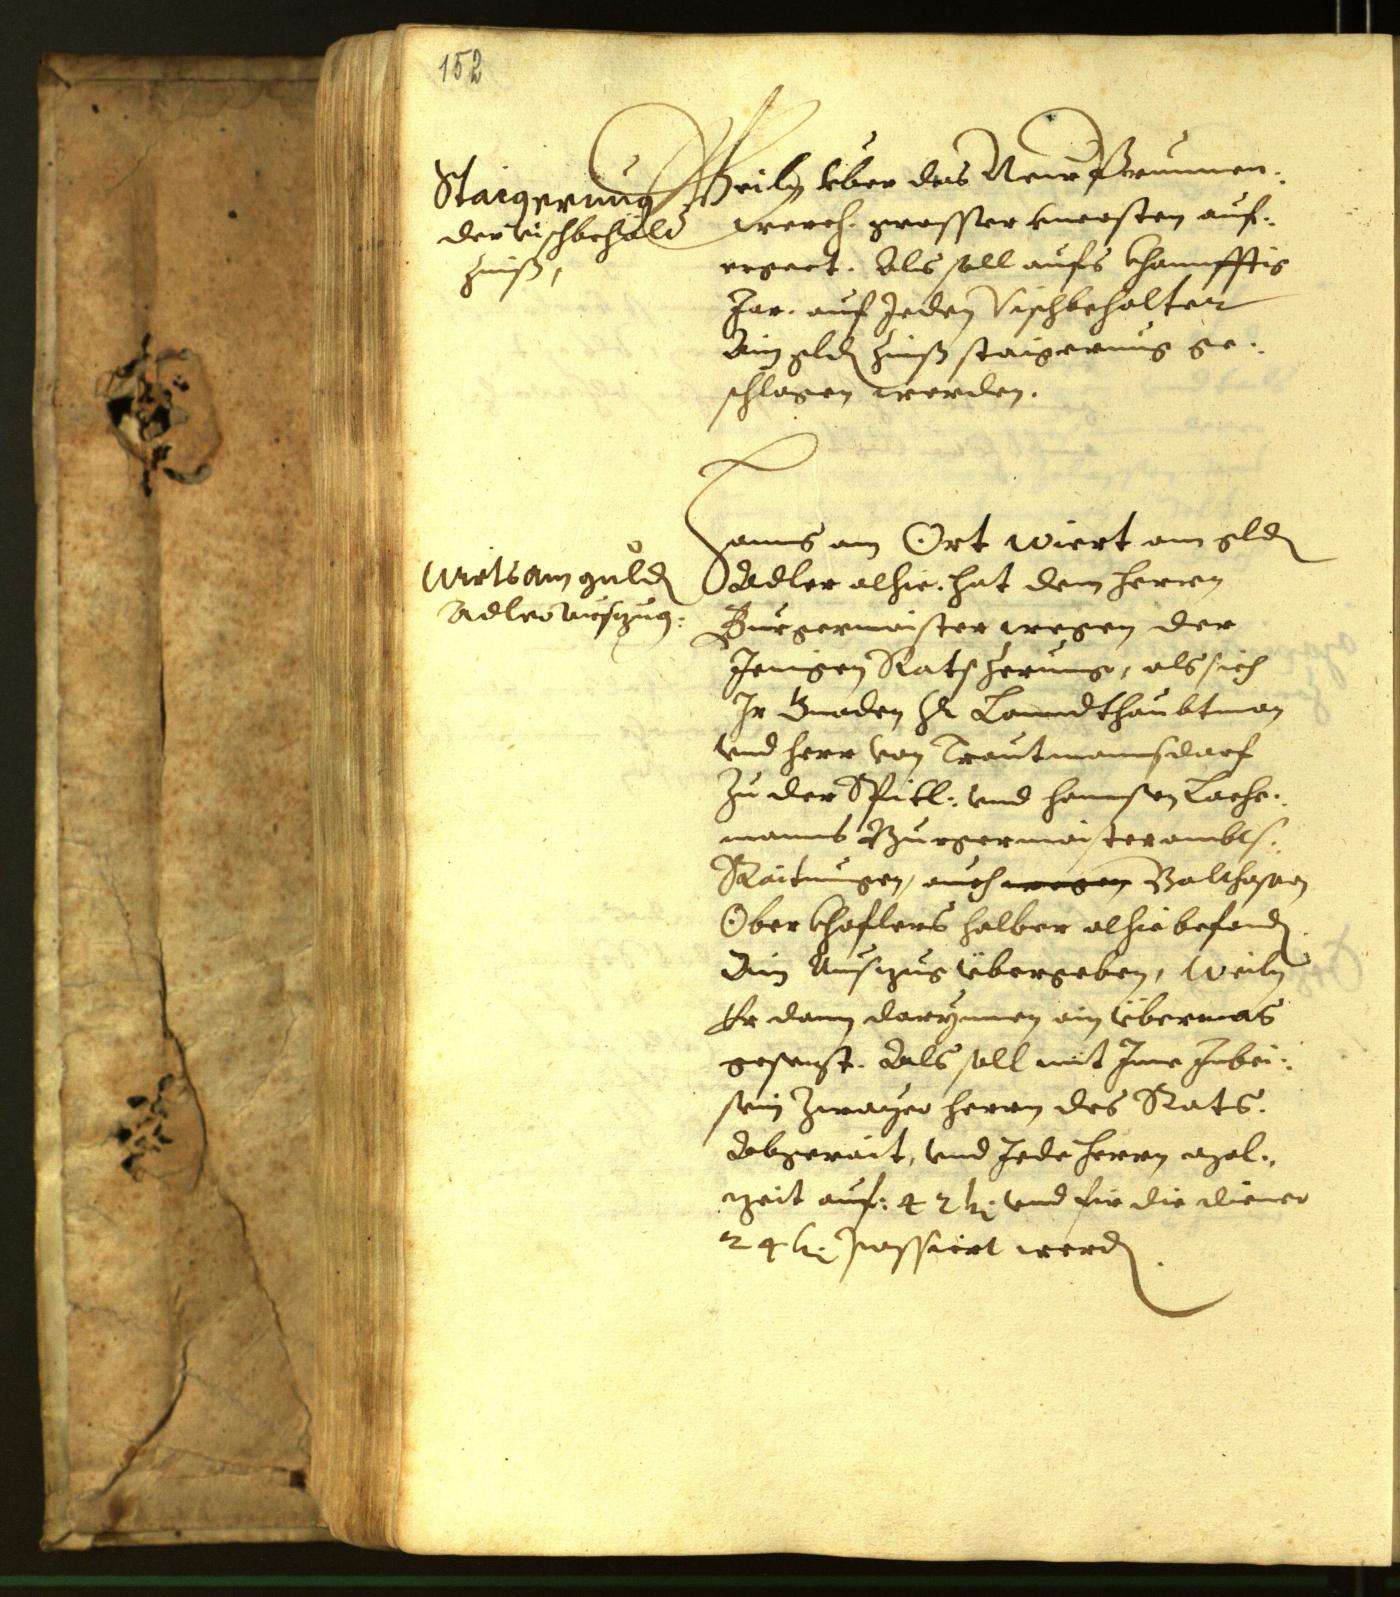 152
Staigerung
der vischbehald
Zinß,
Weiln Vber das Neue Prunnen-
werch. grosser Uncosten auf-
ergeet. Als soll aufs khonnfftig
Jar. auf Jeden Vischbehalter
Ain gld Zinß staigerung ge-
schlagen werden.
Wirts am guld
Adler Auszug:
Hanns am Ort wiert am gld
Adler alhie. hat dem herrn
Burgermaister wegen der
Jenigen Ratszerung, als sich
Ir Gnaden Hr Lanndthaubtman
vnd herr von Trautmannsdorf
Zu der Spitl: vnd hannsen Lache-
manns Burgermaisterambts
Raitungen, auch wegen Balthasarn
Oberkhoflers halber alhie befand.
Ain Auszug übergeben, Weiln
Er dann darynnen ain übermas
gesezt. Als soll mit Ime Inbei-
sein Zwayer herrn des Rats.
Abgerait, vnd Jede herrn mal-
zeit auf: 42 kr. vnd für die diener
24 kr. passiert werd.